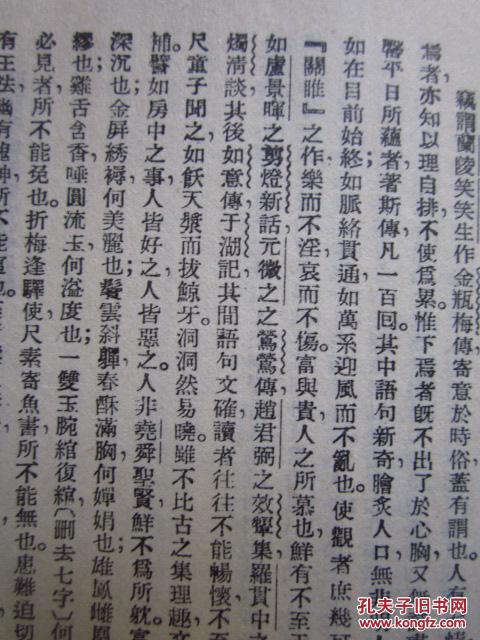 竊謂蘭陵笑笑生作金瓶梅傳寄意於時俗蓋有謂也。人有
爲者亦知以理自排，不使爲累。惟下焉者旣不出了於心胸，又無
罄平日所蘊者，著斯傳，凡一百回。其中語句新奇，膾炙人口，無非
如在目前；始終如脈絡貫通，如萬系迎風而不亂也。使觀者庶幾
『關雎』之作，樂而不淫，哀而不傷。富與貴，人之所慕也，鮮有不至
如盧景暉之剪燈新話，元微之之鶯鶯傳，趙君弼之效顰集，羅貫中之
燭清談，其後如意傳，于湖記，其間語句文確，讀者往往不能暢懷，不
尺童子聞之，如飫天漿而拔鯨牙，洞洞然易曉。雖不比古之集，理趣文
補。譬如房中之事，人皆好之，人皆惡之。人非堯舜聖賢，鮮不爲所躭。富
深沉也；金屏綉褥，何美麗也；鬢雲斜軃，春酥滿胸，何嬋娟也；雄鳳雌凰
繆也；雞舌含香，唾圓流玉，何溢度也；一雙玉腕綰復綰，〔刪去七字〕何
必見者，所不能免也。折梅逢驛，使尺素寄魚書，所不能無也。患難迫切
有王法，幽有鬼神，所不能逭也。
孔夫子旧书网